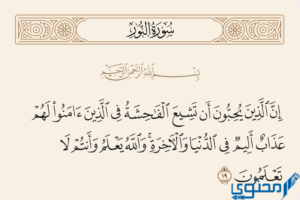 سُورَةُ النُّورِ
بِسْمِ اللَّهِ الرَّحْمَٰنِ الرَّحِيمِ
إِنَّ ٱلَّذِينَ يُحِبُّونَ أَن تَشِيعَ ٱلْفَـٰحِشَةُ فِى ٱلَّذِينَ ءَامَنُواْ لَهُمْ
عَذَابٌ أَلِيمٌ فِى ٱلدُّنْيَا وَٱلْـَٔاخِرَةِۚ وَٱللَّهُ يَعْلَمُ وَأَنتُمْ لَا
تَعْلَمُونَ ١٩
محتوى